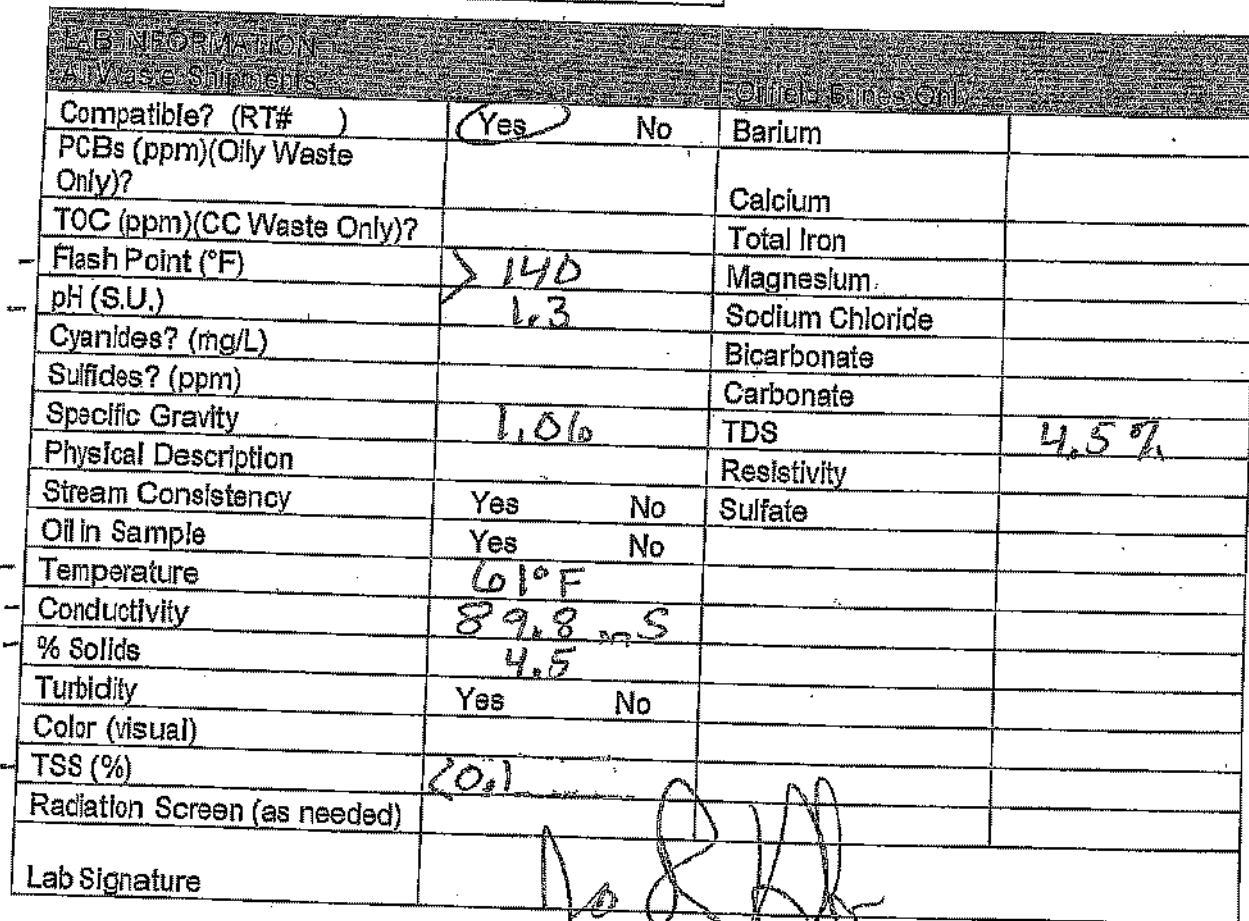 LAB INFORMATION
All Waste Shipments Oilfield Brines Only
Compatible? (RT# ) Yes No Barium
PCBs (ppm)(Oily Waste
Only)? Calcium
TOC (ppm)(CC Waste Only)? Total Iron
Flash Point (°F) > 140 Magnesium
pH (S.U.) 1.3 Sodium Chloride
Cyanides? (mg/L) Bicarbonate
Sulfides? (ppm) Carbonate
Specific Gravity 1.06 TDS 4.5 %
Physical Description Resistivity
Stream Consistency Yes No Sulfate
Oil in Sample Yes No
Temperature 61°F
Conductivity 89.8 mS
% Solids 4.5
Turbidity Yes No
Color (visual)
TSS (%) <0.1
Radiation Screen (as needed)
Lab Signature